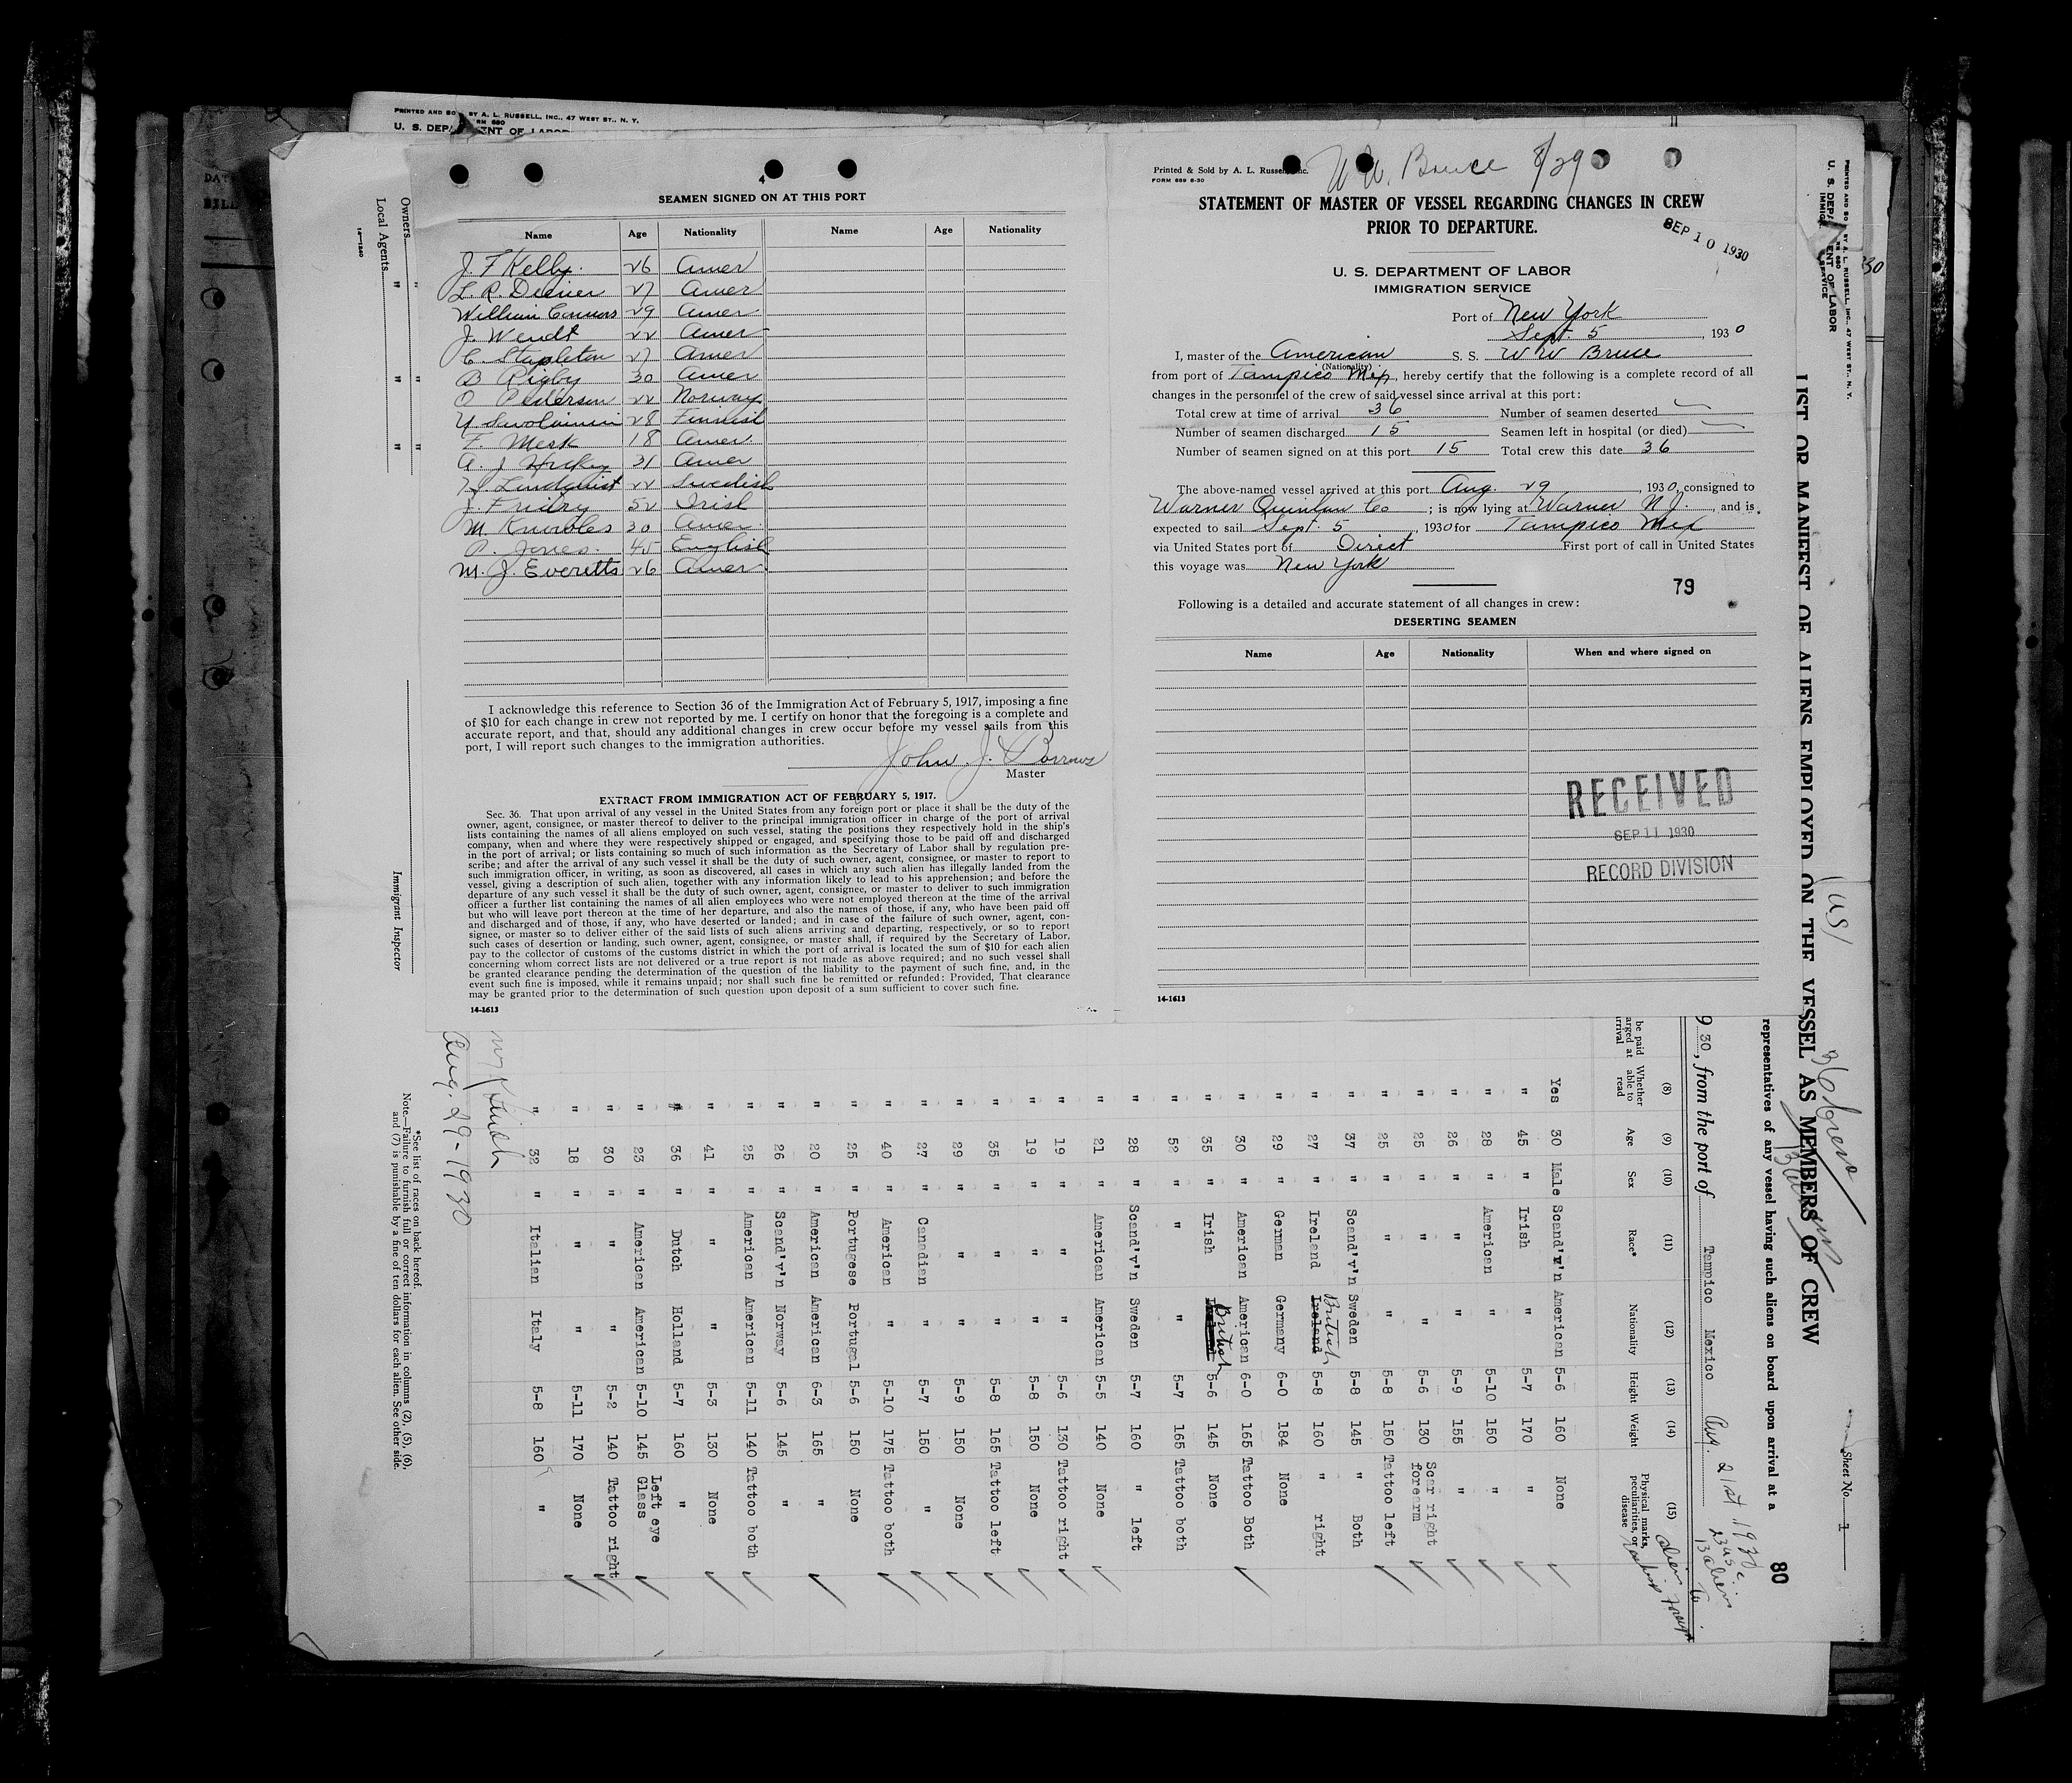 PRINTED AND SO BY A. L. RUSSELL, INC., 47 WEST ST., N. Y.
RM 680
U. S. DEPA ENT OF LABOR
4
SEAMEN SIGNED ON AT THIS PORT
Name Age Nationality Name Age Nationality
J. F Kelly. 26 Amer
L. R. Deener 27 Amer
William Connors 29 Amer
J. Wendt 22 Amer
C. Stapleton 27 Amer
B Rigby 30 Amer
O Pedersen 22 Norway
Y 28 Finnish
F. Merk 18 Amer
A. J 31 Amer
H. Lindquist 22 Swedish
J. Fridry 52 Irish
M. Knowles 30 Amer
P. Jones. 45 English
M. J. Everetts 26 Amer
I acknowledge this reference to Section 36 of the Immigration Act of February 5, 1917, imposing a fine
of $10 for each change in crew not reported by me. I certify on honor that the foregoing is a complete and
accurate report, and that, should any additional changes in crew occur before my vessel sails from this
port, I will report such changes to the immigration authorities.
John. J. Borrows
Master
EXTRACT FROM IMMIGRATION ACT OF FEBRUARY 5, 1917.
Sec. 36. That upon arrival of any vessel in the United States from any foreign port or place it shall be the duty of the
owner, agent, consignee, or master thereof to deliver to the principal immigration officer in charge of the port of arrival
lists containing the names of all aliens employed on such vessel, stating the positions they respectively hold in the ship's
company, when and where they were respectively shipped or engaged, and specifying those to be paid off and discharged
in the port of arrival; or lists containing so much of such information as the Secretary of Labor shall by regulation pre-
scribe; and after the arrival of any such vessel it shall be the duty of such owner, agent, consignee, or master to report to
such immigration officer, in writing, as soon as discovered, all cases in which any such alien has illegally landed from the
vessel, giving a description of such alien, together with any information likely to lead to his apprehension; and before the
departure of any such vessel it shall be the duty of such owner, agent, consignee, or master to deliver to such immigration
officer a further list containing the names of all alien employees who were not employed thereon at the time of the arrival
but who will leave port thereon at the time of her departure, and also the names of those, if any, who have been paid off
and discharged and of those, if any, who have deserted or landed; and in case of the failure of such owner, agent, con-
signee, or master so to deliver either of the said lists of such aliens arriving and departing, respectively, or so to report
such cases of desertion or landing, such owner, agent, consignee, or master shall, if required by the Secretary of Labor,
pay to the collector of customs of the customs district in which the port of arrival is located the sum of $10 for each alien
concerning whom correct lists are not delivered or a true report is not made as above required; and no such vessel shall
be granted clearance pending the determination of the question of the liability to the payment of such fine, and, in the
event such fine is imposed, while it remains unpaid; nor shall such fine be remitted or refunded: Provided, That clearance
may be granted prior to the determination of such question upon deposit of a sum sufficient to cover such fine.
14-1613
Printed & Sold by A. L. Russell, Inc.
FORM 689 8-30
W W. Bruce 8/29
STATEMENT OF MASTER OF VESSEL REGARDING CHANGES IN CREW
PRIOR TO DEPARTURE.
SEP 10 1930
U. S. DEPARTMENT OF LABOR
IMMIGRATION SERVICE
Port of New York
Sept. 5, 1930
I, master of the American S. S. W W Bruce
(Nationality)
from port of Tampico Mex, hereby certify that the following is a complete record of all
changes in the personnel of the crew of said vessel since arrival at this port:
Total crew at time of arrival 36 Number of seamen deserted
Number of seamen discharged 15 Seamen left in hospital (or died)
Number of seamen signed on at this port 15 Total crew this date 36
The above-named vessel arrived at this port Aug. 29, 1930, consigned to
Warner Quinlan Co; is now lying at Warner N. J., and is
expected to sail Sept. 5, 1930 for Tampico Mex
via United States port of Direct First port of call in United States
this voyage was New York
79
Following is a detailed and accurate statement of all changes in crew:
DESERTING SEAMEN
Name Age Nationality When and where signed on
RECEIVED
SEP 11 1930
RECORD DIVISION
14-1613
Owners
Local Agents
14-1240
Immigrant Inspector
*See list of races on back hereof.
Note.—Failure to furnish full or correct information in columns (2), (5), (6),
and (7) is punishable by a fine of ten dollars for each alien. See other side.
PRINTED AND SO BY A. L. RUSSELL, INC., 47 WEST ST., N. Y.
RM 680
U. S. DEPA ENT OF LABOR
IMMIG SERVICE
Sheet No. 1
LIST OR MANIFEST OF ALIENS EMPLOYED ON THE VESSEL AS MEMBERS OF CREW
80
representatives of any vessel having such aliens on board upon arrival at a
9 30, from the port of Tampico Mexico Aug. 21st 1930
(8) (9) (10) (11) (12) (13) (14) (15)
be paid arged at arrival Whether able to read Age Sex Race* Nationality Height Weight Physical marks, peculiarities, or disease
Yes 30 Male Scand'v'n American 5-6 160 None
" 45 " Irish " 5-7 170 "
" 28 " American " 5-10 150 "
" 26 " " " 5-9 155 "
" 25 " " " 5-6 130 Scar right forearm
" 25 " " " 5-8 150 Tattoo left
" 37 " Scand'v'n Sweden 5-8 145 " Both
" 27 " Ireland Ireland British 5-8 160 " right
" 29 " German Germany 6-0 184 None
" 30 " American American 6-0 165 Tattoo Both
" 35 " Irish British 5-6 145 None
" 52 " " " 5-7 165 Tattoo both
" 28 " Scand'v'n Sweden 5-7 160 " left
" 21 " American American 5-5 140 None
" 19 " " " 5-6 130 Tattoo right
" 19 " " " 5-8 150 None
" 35 " " " 5-8 165 Tattoo left
" 29 " " " 5-9 150 None
" 27 " Canadian " 5-7 150 "
" 40 " American " 5-10 175 Tattoo both
" 25 " Portugese Portugal 5-6 150 None
" 20 " American American 6-3 165 "
" 26 " Scand'v'n Norway 5-6 145 "
" 25 " American American 5-11 140 Tattoo both
" 41 " " " 5-3 130 None
" 36 " Dutch Holland 5-7 160 "
" 23 " American American 5-10 145 Left eye Glass
" 30 " " " 5-2 140 Tattoo right
" 18 " " " 5-11 170 None
" 32 " Italian Italy 5-8 160 "
Aug. 29-1930